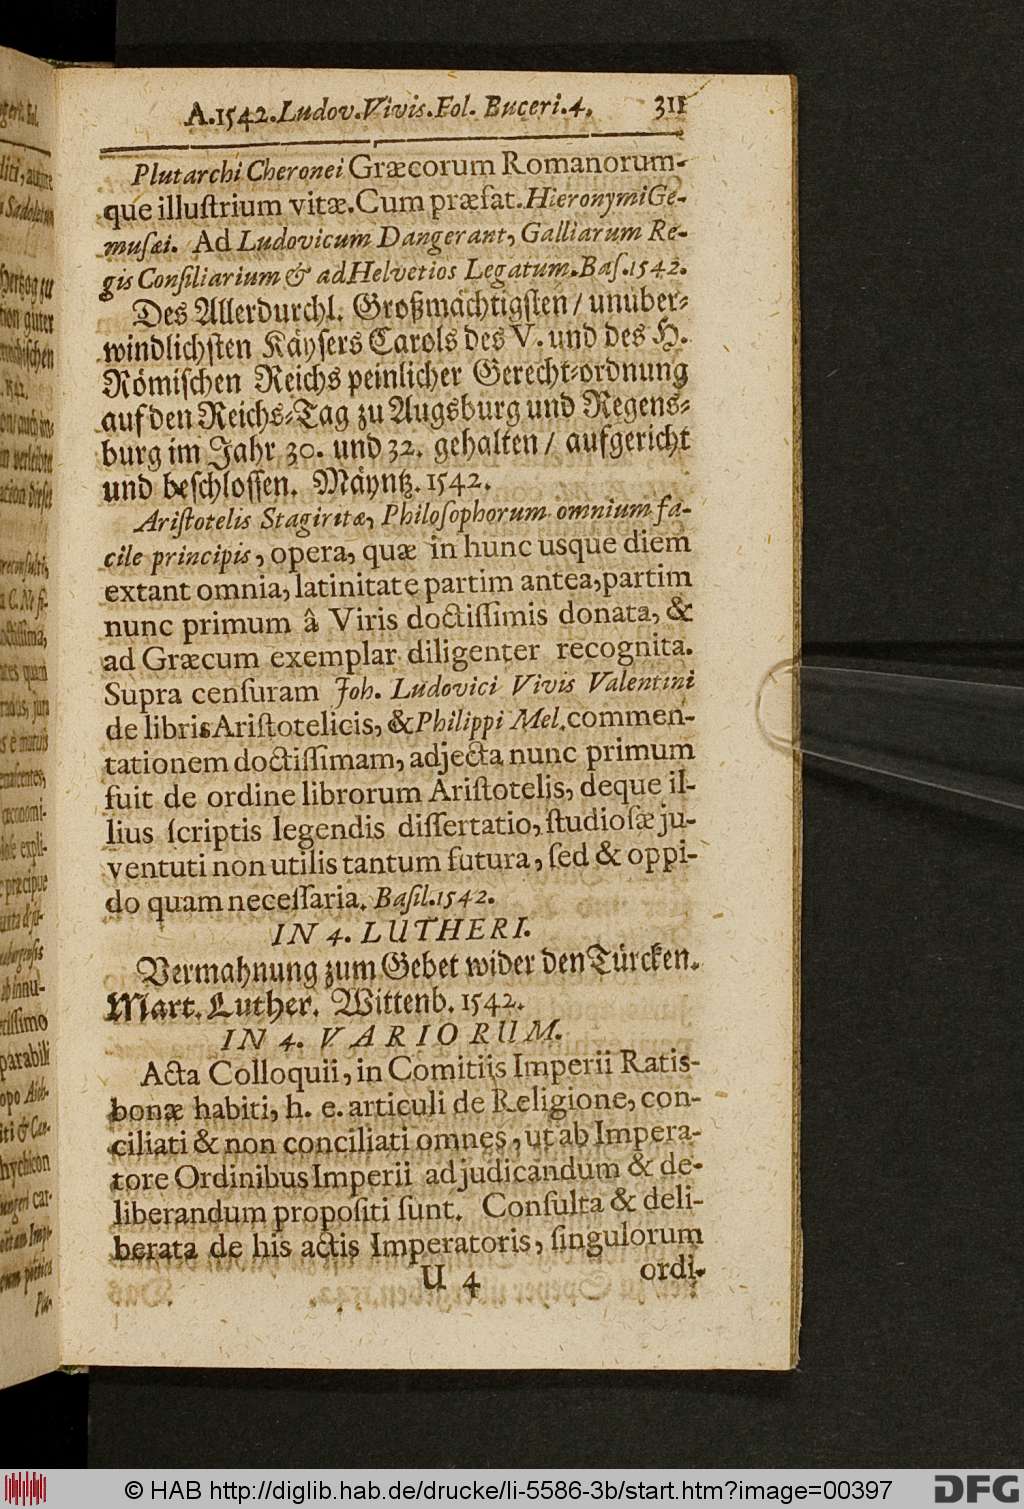 A.1542.Ludov.Vivis.Fol. Buceri.4. 311
Plutarchi Cheronei Græcorum Romanorum-
que illuſtrium vitæ. Cum præfat. Hieronymi Ge-
muſæi. Ad Ludovicum Dangerant, Galliarum Re-
gis Conſiliarium & ad Helvetios Legatum. Baſ.1542.
Des Allerdurchl. Großmächtigſten / unüber-
windlichſten Käyſers Carols des V. und des H.
Römiſchen Reichs peinlicher Gerecht-ordnung
auf den Reichs-Tag zu Augsburg und Regens-
burg im Jahr 30. und 32. gehalten / aufgericht
und beſchloſſen. Mäyntz. 1542.
Ariſtotelis Stagiritæ, Philoſophorum omnium fa-
cile principis, opera, quæ in hunc usque diem
extant omnia, latinitate partim antea, partim
nunc primum â Viris doctiſſimis donata, &
ad Græcum exemplar diligenter recognita.
Supra cenſuram Joh. Ludovici Vivis Valentini
de libris Ariſtotelicis, & Philippi Mel. commen-
tationem doctiſſimam, adjecta nunc primum
fuit de ordine librorum Ariſtotelis, deque il-
lius ſcriptis legendis diſſertatio, ſtudioſæ ju-
ventuti non utilis tantum futura, ſed & oppi-
do quam neceſſaria. Baſil.1542.
IN 4. LUTHERI.
Vermahnung zum Gebet wider den Türcken.
Mart. Luther. Wittenb. 1542.
IN 4. VARIORUM.
Acta Colloquii, in Comitiis Imperii Ratis-
bonæ habiti, h. e. articuli de Religione, con-
ciliati & non conciliati omnes, ut ab Impera-
tore Ordinibus Imperii adjudicandum & de-
liberandum propoſiti ſunt. Conſulta & deli-
berata de his actis Imperatoris, ſingulorum
U 4 ordi-
© HAB http://diglib.hab.de/drucke/li-5586-3b/start.htm?image=00397
DFG